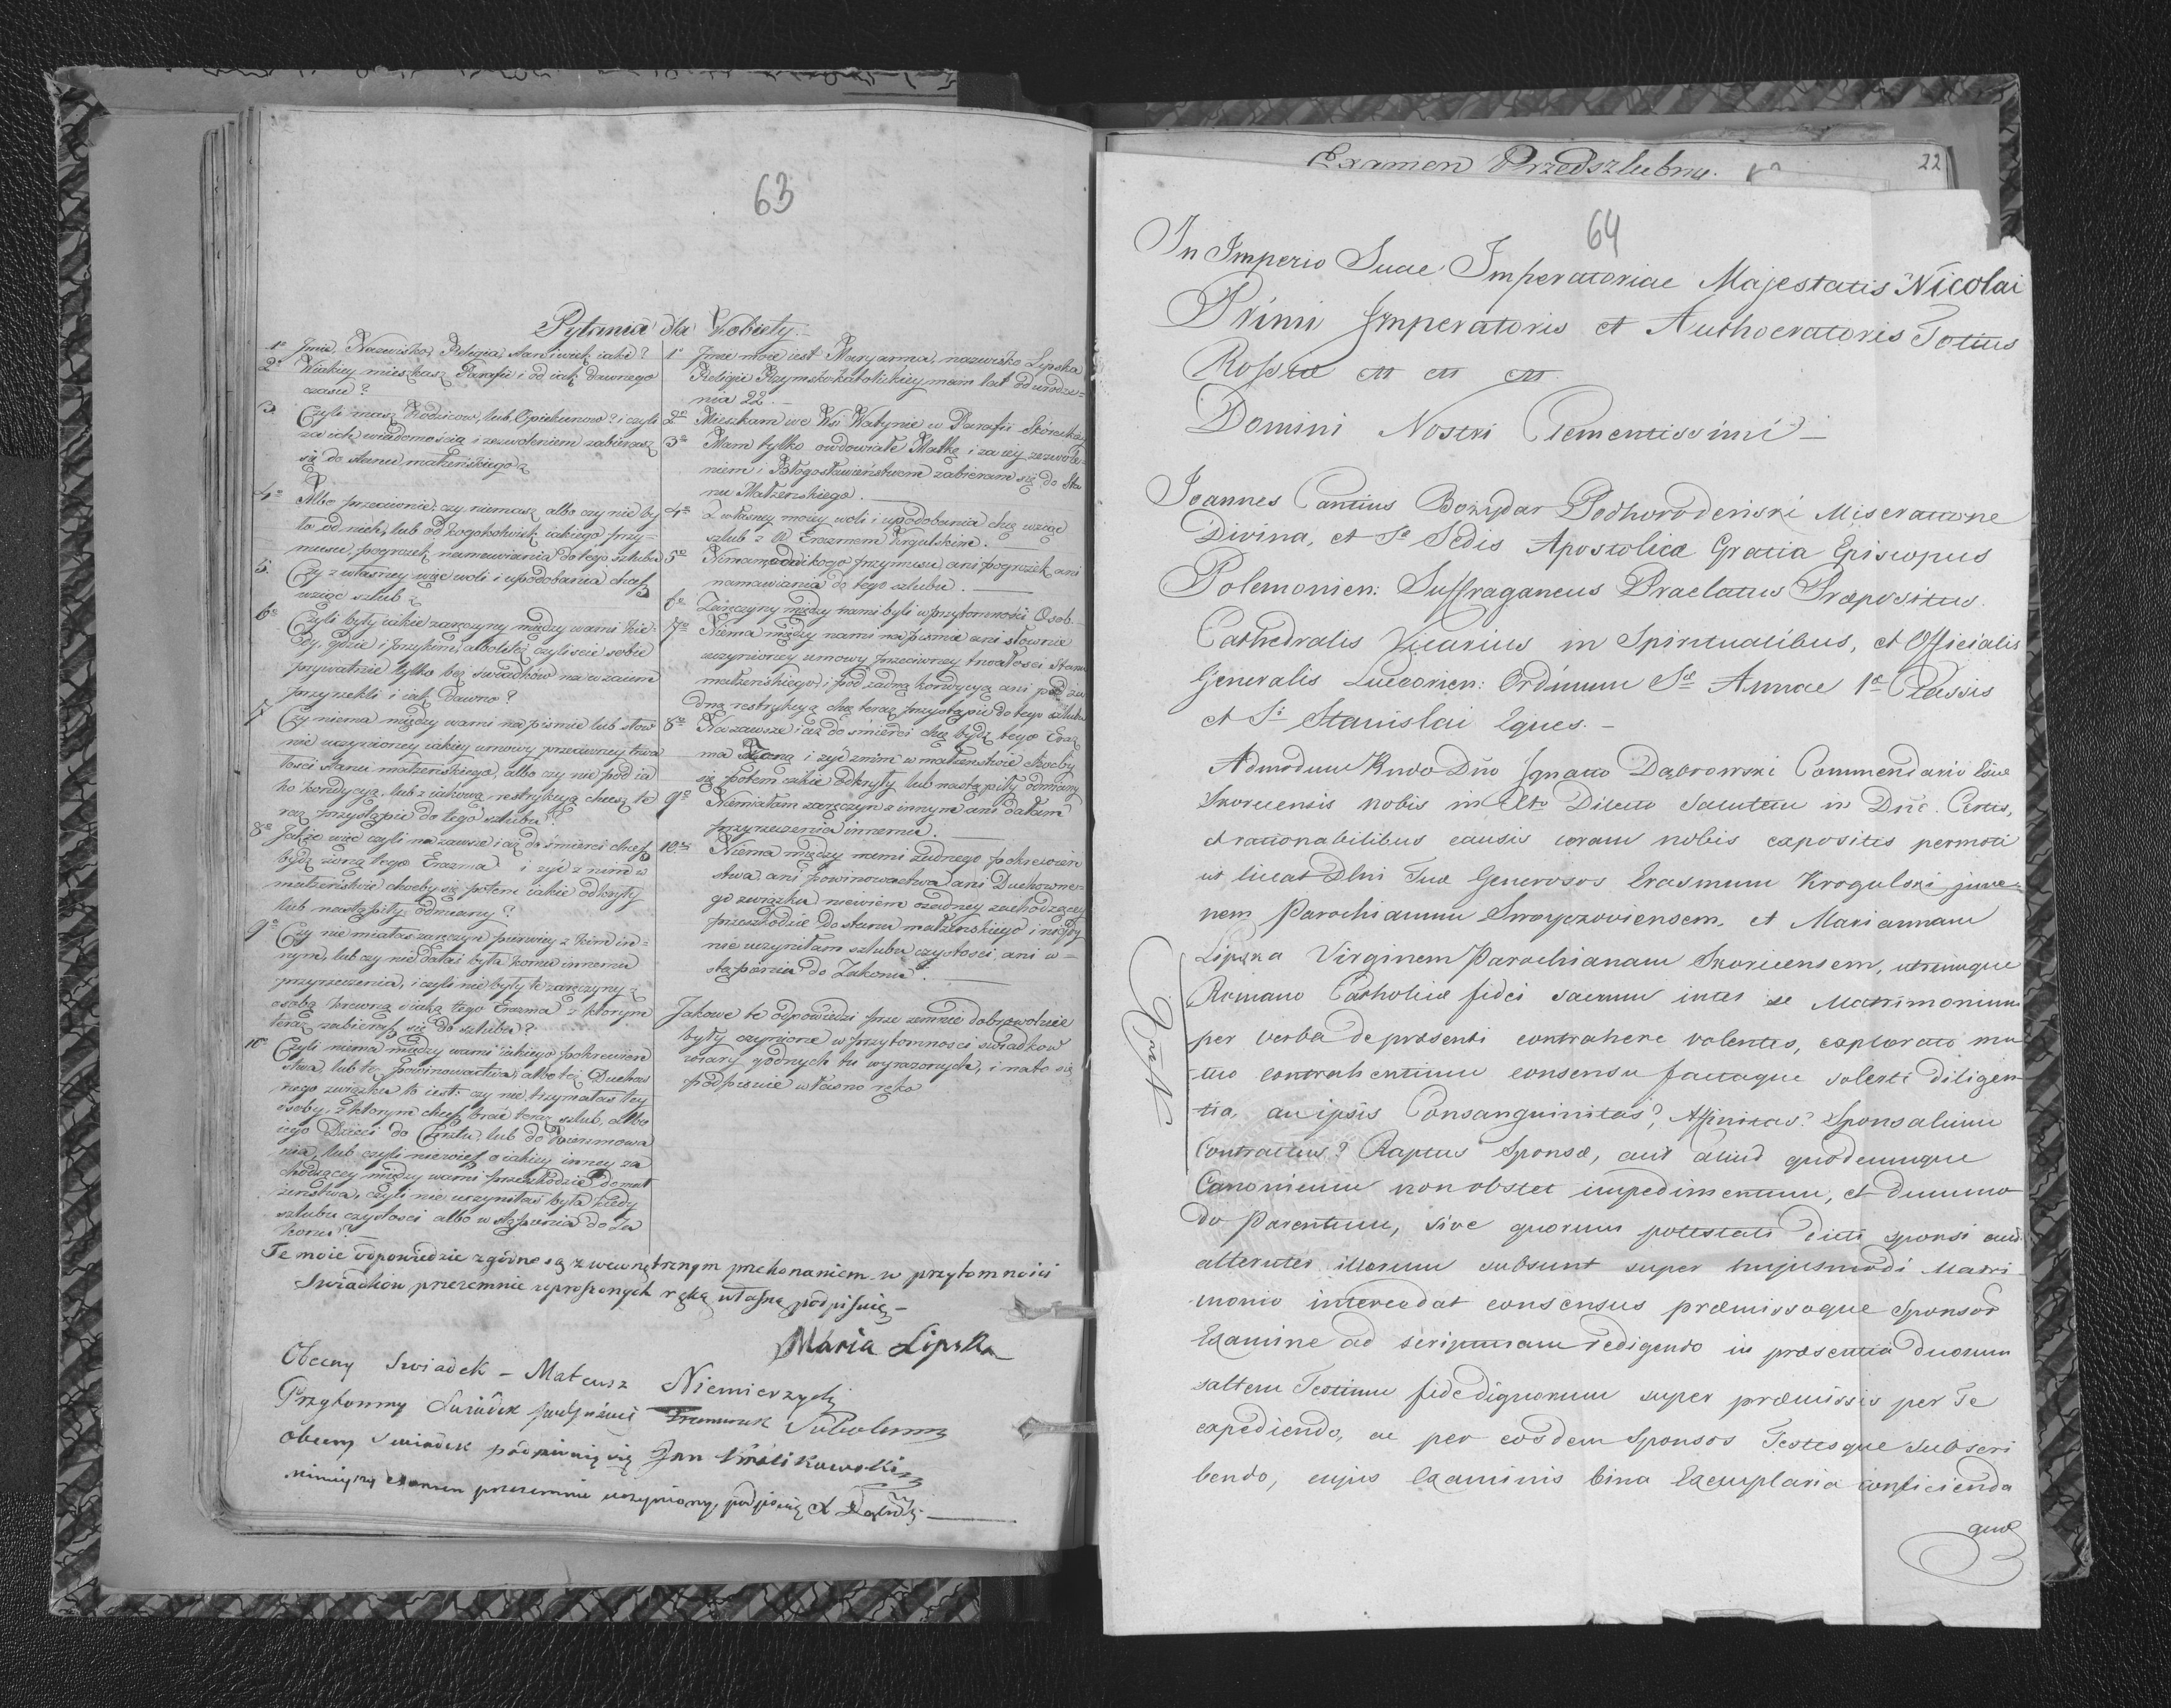 63
Pytania dla Kobiety.
1º Imie, Nazwisko, Religia, stan i wiek iaki?
2º W iakiey mieszkasz Parafii i od iak dawnego
czasu?
3. Czyli masz Rodzicow, lub Opiekunow? i czyli
za ich wiadomością i zezwoleniem zabierasz
się do stanu małżeńskiego?
4º Albo przeciwnie, czy niemasz albo czy nie by
ło od nich, lub od kogokolwiek iakiego przy-
musu, pogrozek, namawiania do tego szlubu
5. Czy z własney więc woli i upodobania chcesz
wziąć szlub?
6º Czyli były iakie zaręczyny między wami kie-
dy, gdzie i przy kim, albo też czyliscie sobie
prywatnie tylko bez swiadków nawzaiem
przyrzekli i iak dawno?
7 Czy niema między wami na pismie lub słow
nie uczynioney iakiey umowy przeciwney trwa
łości stanu małżeńskiego, albo czy nie pod ia
ką kondycyą, lub z iakową restrykcyą chcesz te
raz przystąpić do tego szlubu?
8º Jakże więc czyli na zawsze i aż do śmierci chcesz
bydź żoną tego Erazma i żyć z nim w
małżeństwie choćby się potem iakie odkryły
lub nastąpiły odmiany?
9º Czy nie miałaś zaręczyn pierwiey z kim in-
nym, lub czy nie dałaś była komu innemu
przyrzeczenia, i czyli nie były te zaręczyny z
osobą krewną iaką tego Erazma z ktorym
teraz zabierasz się do szlubu?
10º Czyli niema między wami iakiego pokrewień
stwa, lub też powinowactwa, albo też Duchow
nego związku to iest: czy nie trzymałaś tey
osoby, z ktorym chcesz brać teraz szlub, albo
iego Dzieci do Chrztu, lub do Bierzmowa
nia, lub czyli niewiesz o iakiey inney za
chodzącey między wami przeszkodzie do mał
żeństwa, czyli nie uczyniłaś była kiedy
szlubu czystości albo wstąpienia do Za
konu?
1º Imie moie iest Maryanna, nazwisko Lipska
Religii Rzymsko-katolickiey mam lat od urodze-
nia 22.
2º Mieszkam we Wsi Watynie w Parafii Skórickiey
3º Mam tylko owdowiałę Matkę i za iey zezwole-
niem i Błogosławieństwem zabieram się do Sta
nu Małżenskiego.
4º Z własney moiey woli i upodobania chcę wziąć
szlub z W. Erazmem Krgulskim.
5º Niemam od nikogo przymusu ani pogrozek ani
namawiania do tego szlubu.
6º Zaręczyny między nami byli w przytomności Osob.
7º Niema między nami na pismie ani słownie
uczynioney umowy przeciwney trwałości Stanu
małżeńskiego, i pod żadną kondycyą ani pod ża
dną restrykcyą chcę teraz przystąpić do tego szlubu
8º Na zawsze i aż do śmierci chcę bydź tego Eraz
ma Żoną i żyć z nim w małżeństwie choćby
się potem iakie odkryły lub nastąpiły odmiany
9º Niemiałam zaręczyn z innym ani dałam
przyrzeczenia innemu.
10º Niema między nami żadnego pokrewień
stwa, ani powinowactwa ani Duchowne-
go związku niewiem o żadney zachodzącey
przeszkodzie do stanu małżeńskiego i nigdy
nie uczyniłam szlubu czystości, ani w-
stąpienia do Zakonu.
Jakowe te odpowiedzi prze zemnie dobrowolnie
były czynione w przytomności świadkow
wiary godnych tu wyrażonych, i na to się
podpisuię własną ręką
Te moie odpowiedzie zgodne są z wewnętrznym przekonaniem w przytomności
Świadkow przezemnie uproszonych ręką własną podpisuię –
Maria Lipska
Obecny Swiadek – Mateusz Niemierzycki
Przytomny Swiadek podpisuię
Obecny Swiadek podpisuię się Jan Królikowski
Ninieyszy examen przezemnie uczyniony, podpisuię X Dąbrowski
Examen Przedszlubny.
22
64
In Imperio Suae Imperatoriae Majestatis Nicolai
Primi Imperatoris et Authocratoris Totius
Rossiæ etc etc etc
Domini Nostri Clementissimi –
Joannes Cantius Bożydar Podhorodeński Miseratione
Divina, et Sæ Sedis Apostolicæ Gratia Episcopus
Polemonien: Suffraganeus Praelatus Præpositus
Cathedralis Vicarius in Spiritualibus, et Officialis
Generalis Luceorien: Ordinum Sæ Annae 1æ Classis
et Si Stanislai Eques. –
Admodum Rndo Dño Ignatio Dąbrowski Commendario Eccłæ
Skoricensis nobis in Chto Dilecto Salutem in Dño. Certis,
et rationabilibus causis coram nobis expositis permoti
ut liceat Dłni Tuæ Generosos Erasmum Krogulski juve-
nem Parochianum Swoyczoviensem, et Mariannam
Lipska Virginem Parochianam Skoricensem, utrumque
Romano Catholicæ fidei sacrum inter se Matrimonium
per verba de præsenti contrahere volentes, explorato mu
tuo contrahentium consensu factaque solerti diligen
tia, an ipsis Consanguinitas? Affinitas? Sponsalium
Contractus? Raptus Sponsæ, aut aliud quodcunque
Canonicum non obstet impedimentum, et dummo
do Parentum, sive quorum potestati dicti sponsi aut
alteruter illorum subsunt super hujusmodi Matri
monio intercedat consensus præmissoque Sponsor
Examine ad scripturam redigendo in præsentia duorum
saltem Testium fide dignorum super præmissis per Te
expediendo, ac per eosdem Sponsos Testesque subscri
bendo, cujus Examinis bina Exemplaria conficienda
quoe